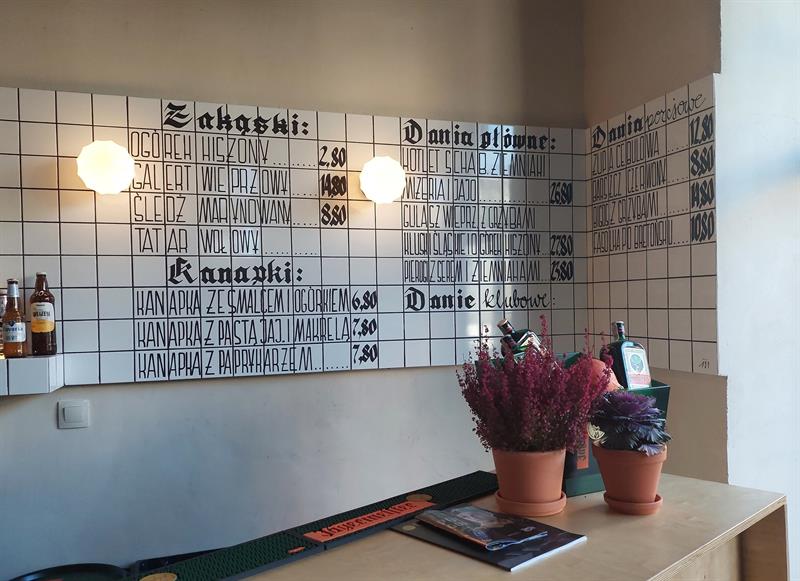 Zakąski:
OGÓREK KISZONY......2,80
GALERT WIEPRZOWY....14,80
ŚLEDŹ MARYNOWANY......8,80
TATAR WOŁOWY.........
Kanapki:
KANAPKA ZE SMALCEM I OGÓRKIEM 6,80
KANAPKA Z PASTĄ JAJ. I MAKRELĄ 7,80
KANAPKA Z PAPRYKARZEM......7,80
Dania główne:
KOTLET SCHAB. ZIEMNIAKI
MIZERIA I JAJO.......26,80
GULASZ WIEPRZ Z GRZYBAMI
KLUSKI ŚLĄSKIE I OGÓREK KISZONY...27,80
PIEROGI Z SEREM I ZIEMNIAKAMI..23,80
Danie klubowe:
Dania porcjowe
ZUPA CEBULOWA....12,80
BARSZCZ CZERWONY....8,80
BIGOS Z GRZYBAMI....14,80
FASOLKA PO BRETOŃSKU....10,80
Jägermeister